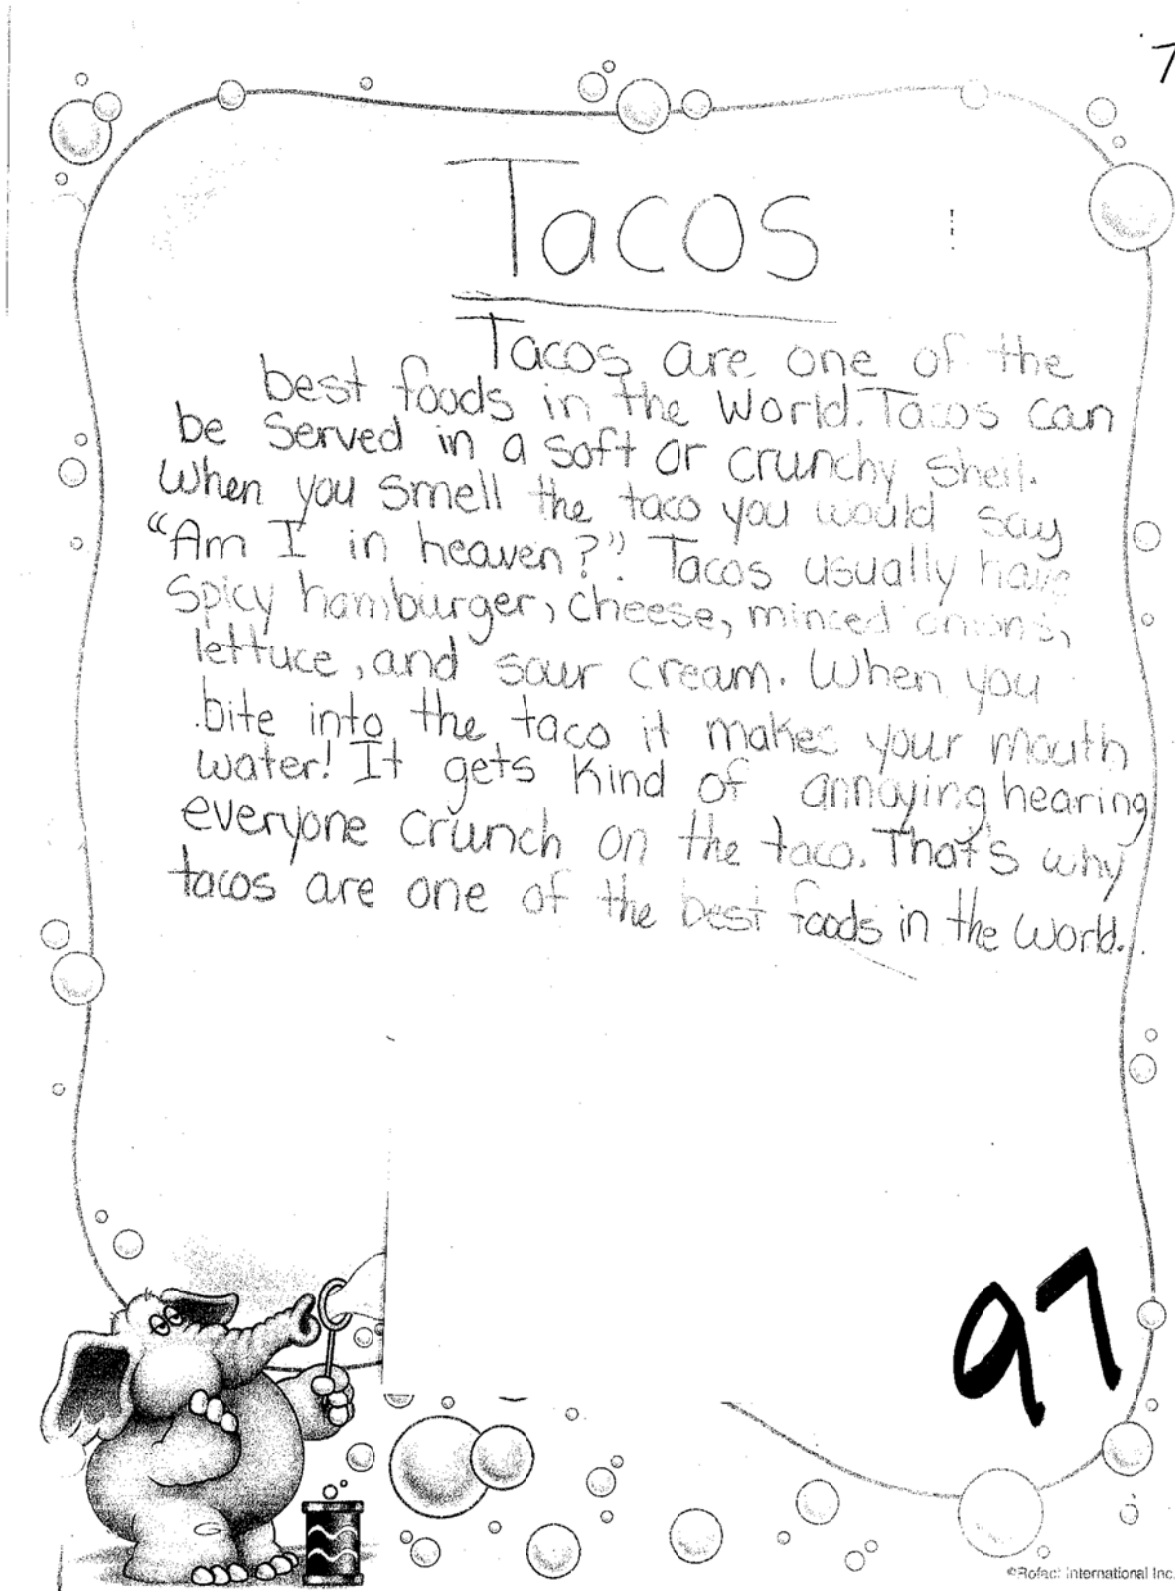 7
Tacos
Tacos are one of the
best foods in the World. Tacos can
be Served in a soft or crunchy shell.
When you smell the taco you would say
"Am I in heaven?" Tacos usually have
spicy hamburger, cheese, minced onions,
lettuce, and sour cream. When you
bite into the taco it makes your mouth
water! It gets kind of annoying hearing
everyone crunch on the taco. That's why
tacos are one of the best foods in the world.
97
©Rofact International Inc.